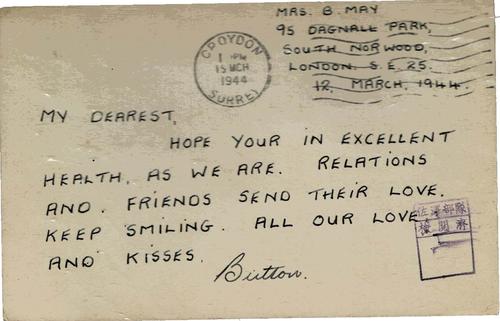 MRS. B. MAY
95 DAGNALL PARK,
SOUTH NORWOOD,
LONDON. S.E.25.
12, MARCH, 1944.
CROYDON
1 PM
15 MCH
1944
SURREY
MY DEAREST,
HOPE YOUR IN EXCELLENT
HEALTH, AS WE ARE. RELATIONS
AND. FRIENDS SEND THEIR LOVE.
KEEP SMILING. ALL OUR LOVE
AND KISSES.
Button.